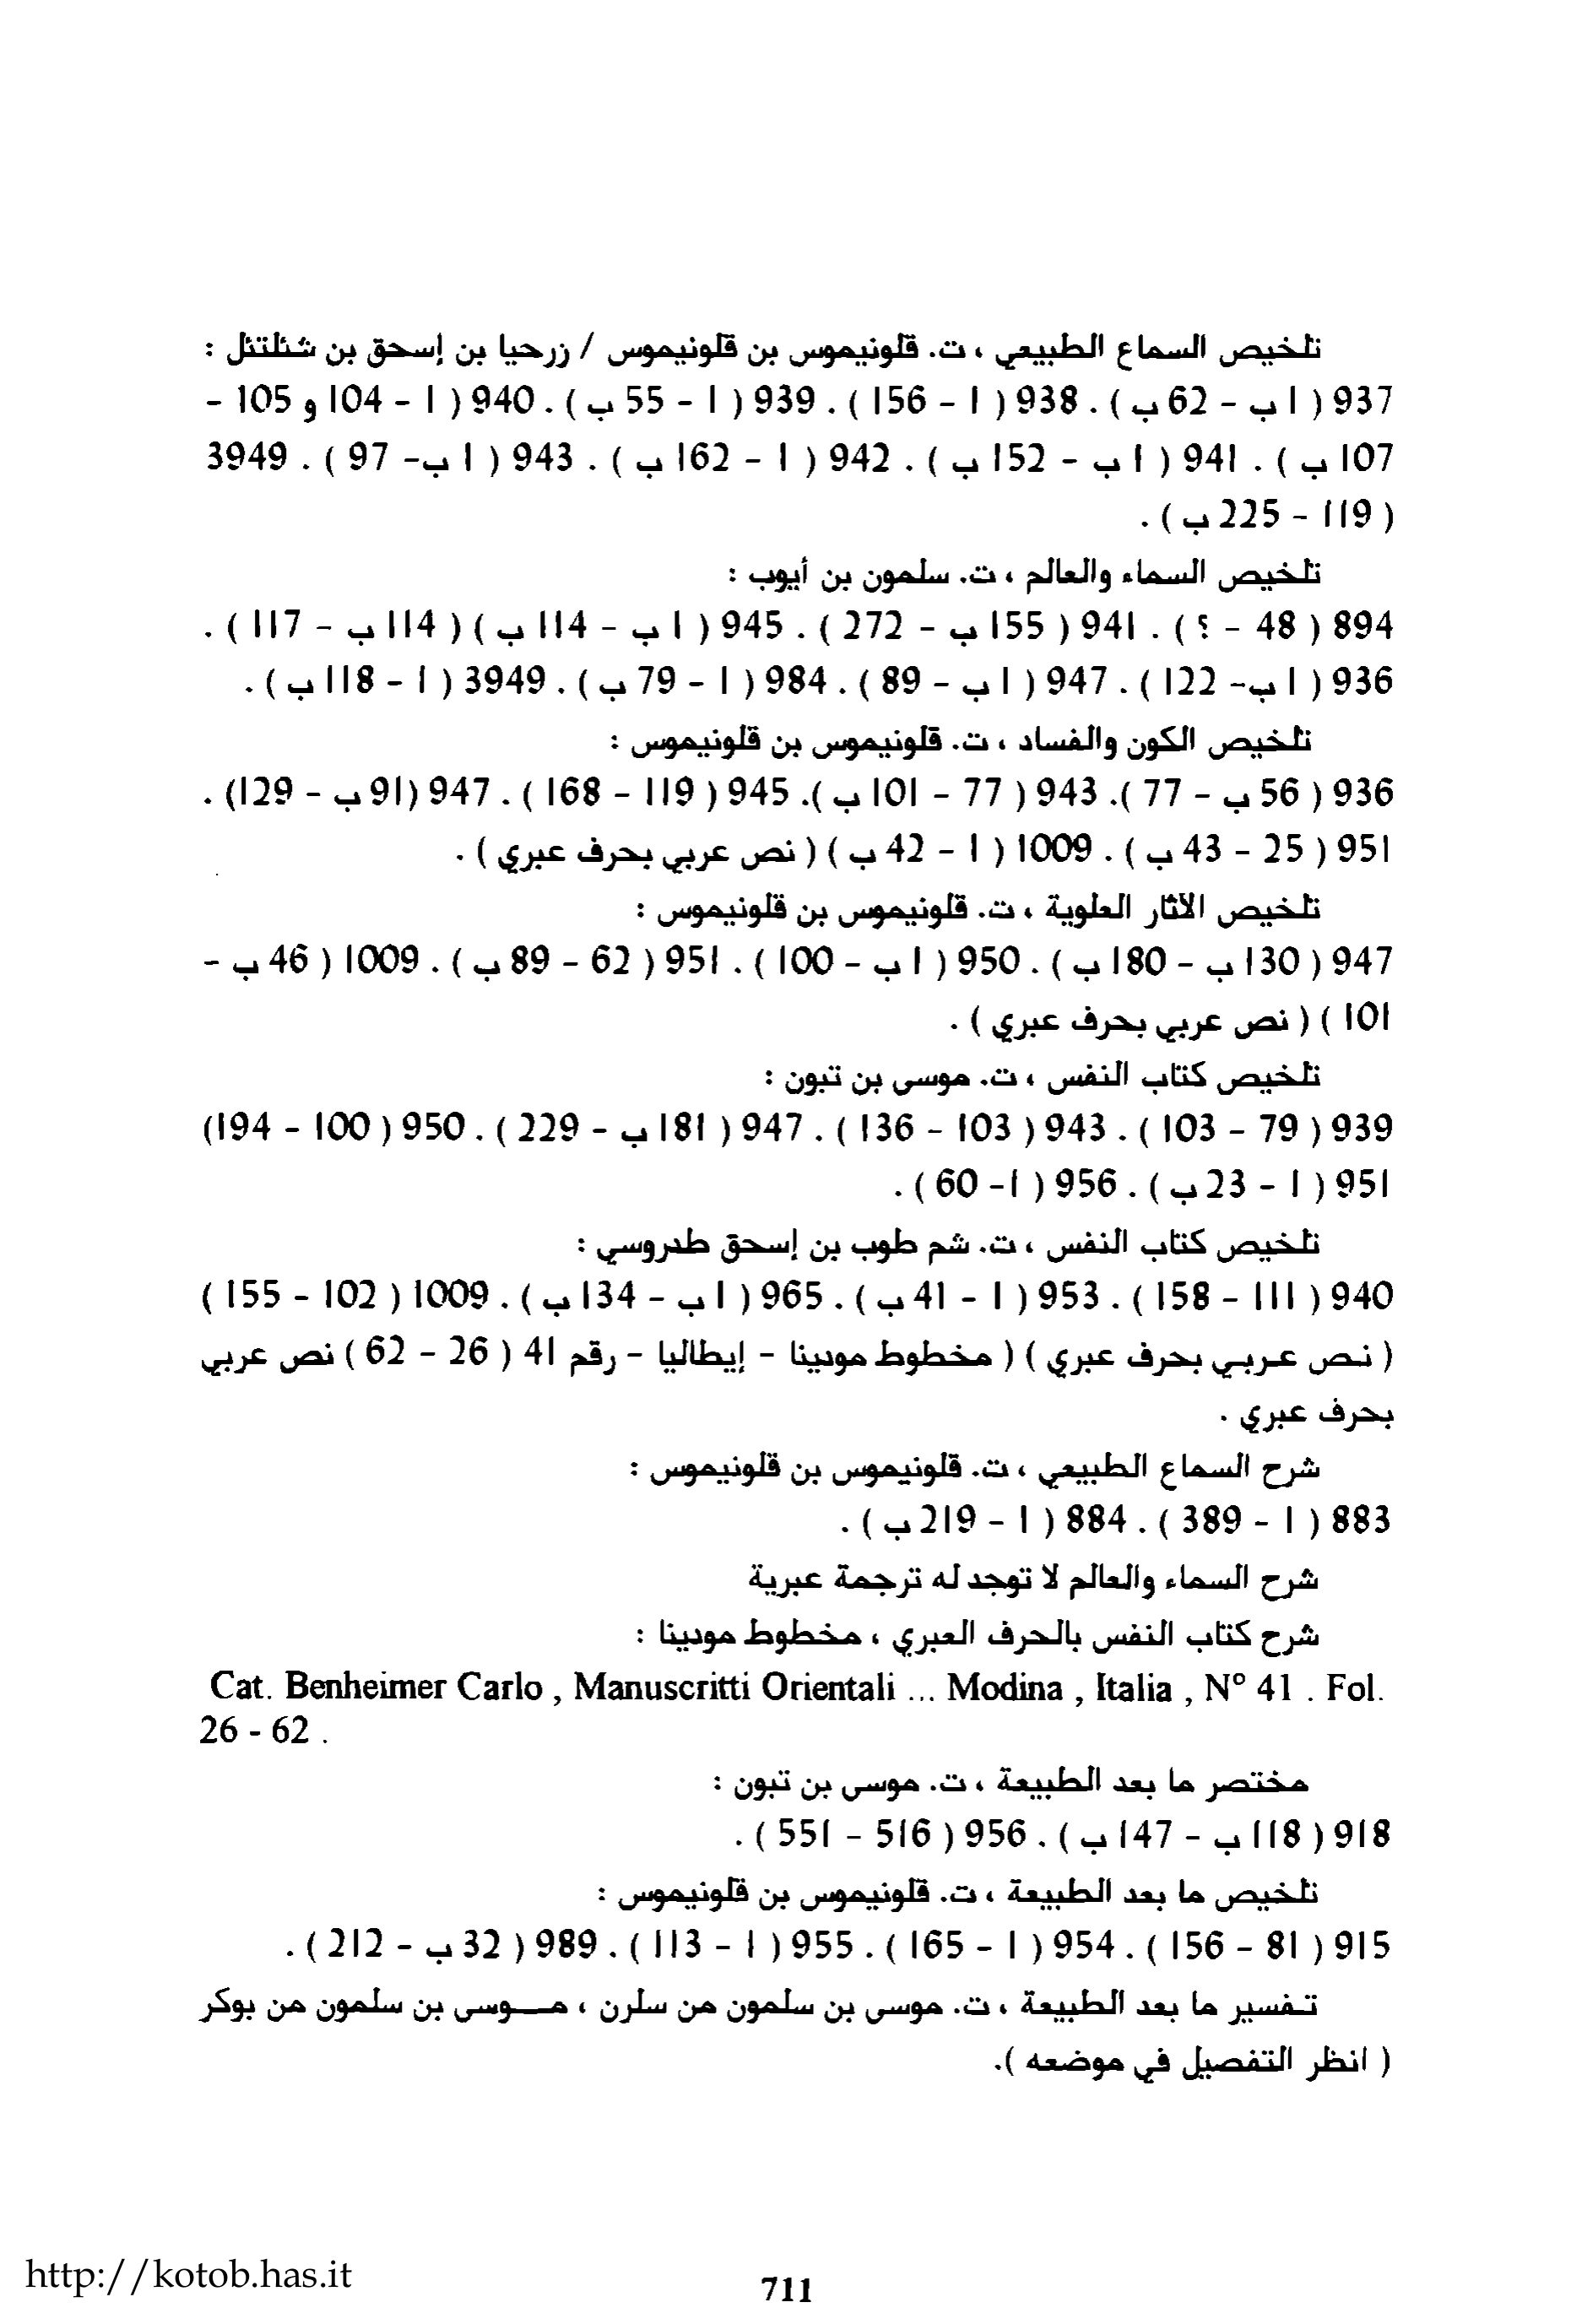 تلخيص السماع الطبيعي ، ت. قلونيموس بن قلونيموس / زرحيا بن إسحق بن شئلتئل :
937 ( 1 ب - 62 ب ) . 938 ( 1 - 156 ) . 939 ( 1 - 55 ب ) . 940 ( 1 - 104 و 105 -
107 ب ) . 941 ( 1 ب - 152 ب ) . 942 ( 1 - 162 ب ) . 943 ( 1 ب- 97 ) . 3949
( 119 - 225 ب ) .
تلخيص السماء والعالم ، ت. سلمون بن أيوب :
894 ( 48 - ؟ ) . 941 ( 155 ب - 272 ) . 945 ( 1 ب - 114 ب ) ( 114 ب - 117 ) .
936 ( 1 ب- 122 ) . 947 ( 1 ب - 89 ) . 984 ( 1 - 79 ب ) . 3949 ( 1 - 118 ب ) .
تلخيص الكون والفساد ، ت. قلونيموس بن قلونيموس :
936 ( 56 ب - 77 ). 943 ( 77 - 101 ب ). 945 ( 119 - 168 ) . 947 (91 ب - 129) .
951 ( 25 - 43 ب ) . 1009 ( 1 - 42 ب ) ( نص عربي بحرف عبري ) .
تلخيص الآثار العلوية ، ت. قلونيموس بن قلونيموس :
947 ( 130 ب - 180 ب ) . 950 ( 1 ب - 100 ) . 951 ( 62 - 89 ب ) . 1009 ( 46 ب -
101 ) ( نص عربي بحرف عبري ) .
تلخيص كتاب النفس ، ت. موسى بن تبون :
939 ( 79 - 103 ) . 943 ( 103 - 136 ) . 947 ( 181 ب - 229 ) . 950 ( 100 - 194)
951 ( 1 - 23 ب ) . 956 ( 1- 60 ) .
تلخيص كتاب النفس ، ت. شم طوب بن إسحق طدروسي :
940 ( 111 - 158 ) . 953 ( 1 - 41 ب ) . 965 ( 1 ب - 134 ب ) . 1009 ( 102 - 155 )
( نص عربي بحرف عبري ) ( مخطوط مودينا - إيطاليا - رقم 41 ( 26 - 62 ) نص عربي
بحرف عبري .
شرح السماع الطبيعي ، ت. قلونيموس بن قلونيموس :
883 ( 1 - 389 ) . 884 ( 1 - 219 ب ) .
شرح السماء والعالم لا توجد له ترجمة عبرية
شرح كتاب النفس بالحرف العبري ، مخطوط مودينا :
Cat. Benheimer Carlo , Manuscritti Orientali ... Modina , Italia , N° 41 . Fol.
26 - 62 .
مختصر ما بعد الطبيعة ، ت. موسى بن تبون :
918 ( 118 ب - 147 ب ) . 956 ( 516 - 551 ) .
تلخيص ما بعد الطبيعة ، ت. قلونيموس بن قلونيموس :
915 ( 81 - 156 ) . 954 ( 1 - 165 ) . 955 ( 1 - 113 ) . 989 ( 32 ب - 212 ) .
تفسير ما بعد الطبيعة ، ت. موسى بن سلمون من سلرن ، مـــوسى بن سلمون من بوكر
( انظر التفصيل في موضعه ).
http://kotob.has.it
711